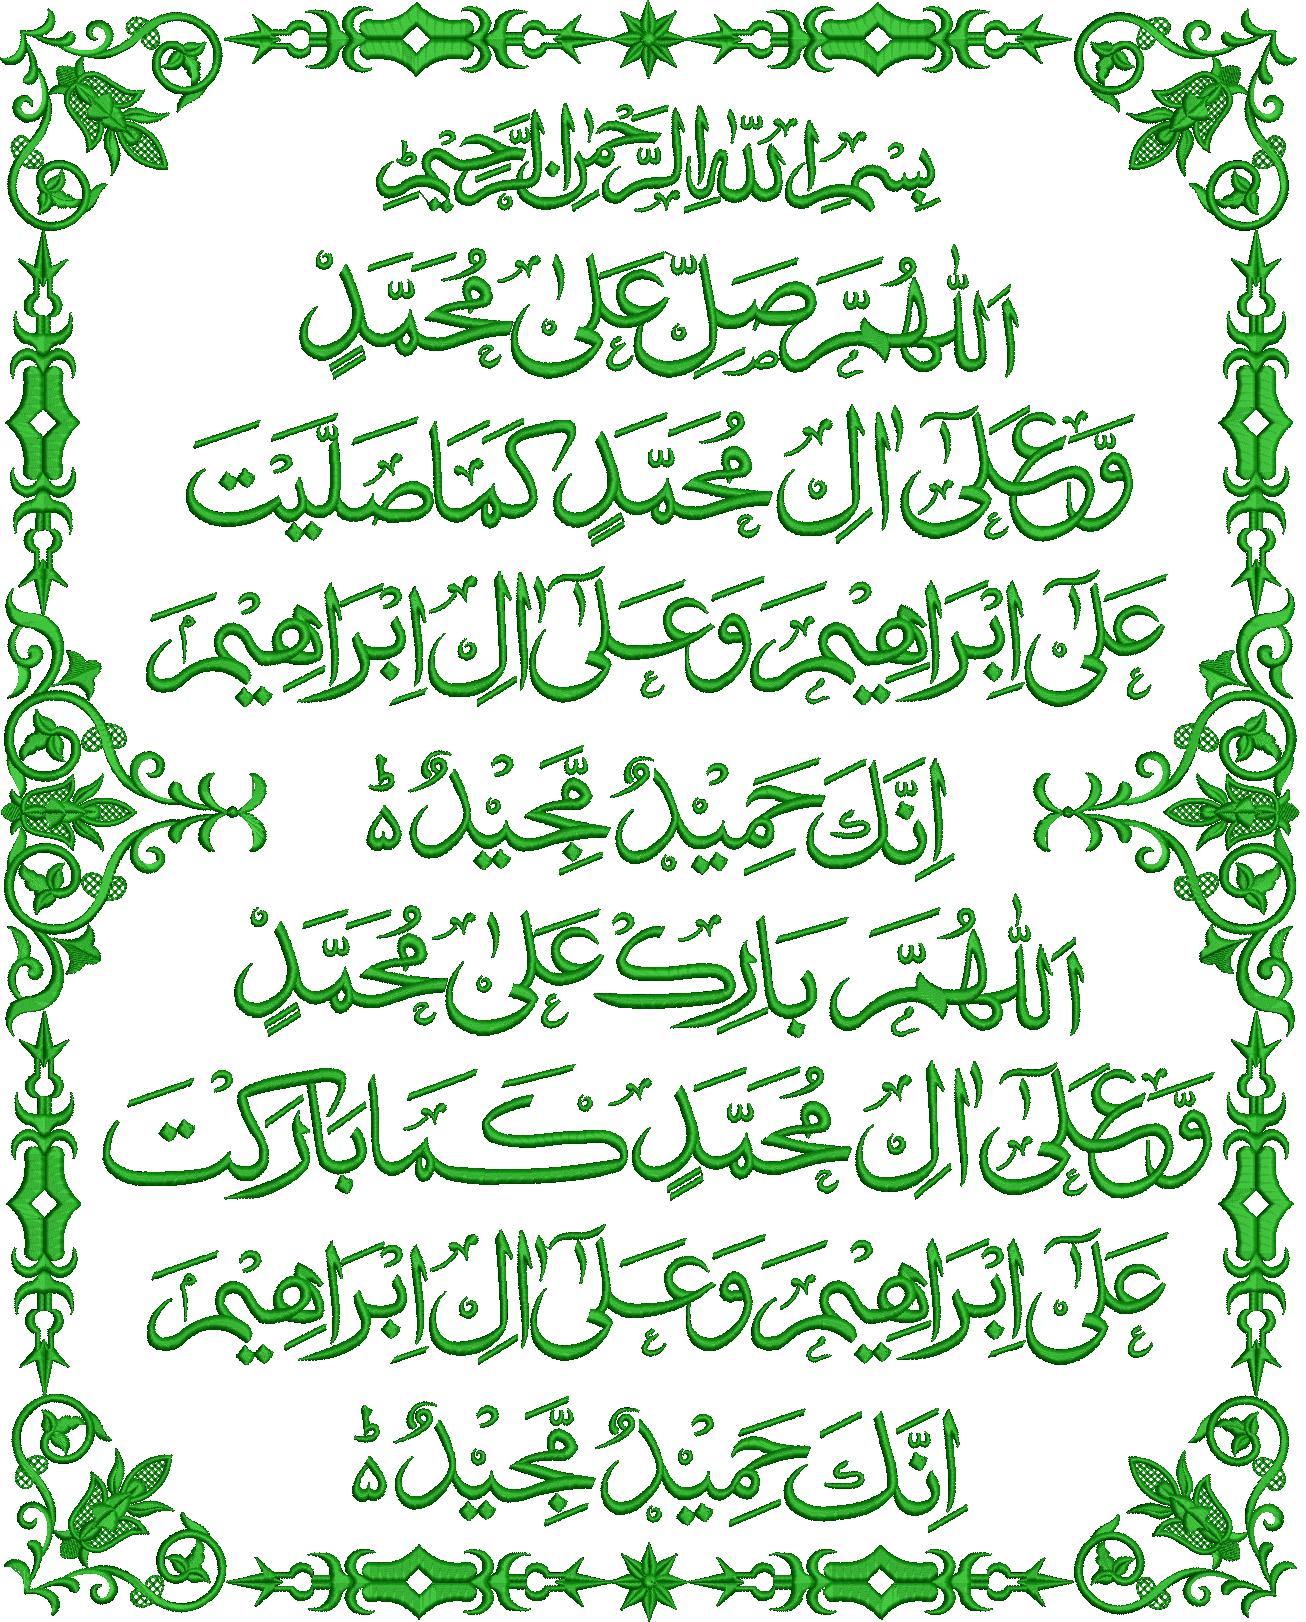 بِسْمِ اللّٰهِ الرَّحْمٰنِ الرَّحِيْمِ ط
اَللّٰهُمَّ صَلِّ عَلٰى مُحَمَّدٍ
وَّعَلٰٓى اٰلِ مُحَمَّدٍ كَمَا صَلَّيْتَ
عَلٰٓى اِبْرَاهِيْمَ وَعَلٰٓى اٰلِ اِبْرَاهِيْمَ
اِنَّكَ حَمِيْدٌ مَّجِيْدٌ ۵ ط
اَللّٰهُمَّ بَارِكْ عَلٰى مُحَمَّدٍ
وَّعَلٰٓى اٰلِ مُحَمَّدٍ كَمَا بَارَكْتَ
عَلٰٓى اِبْرَاهِيْمَ وَعَلٰٓى اٰلِ اِبْرَاهِيْمَ
اِنَّكَ حَمِيْدٌ مَّجِيْدٌ ۵ ط